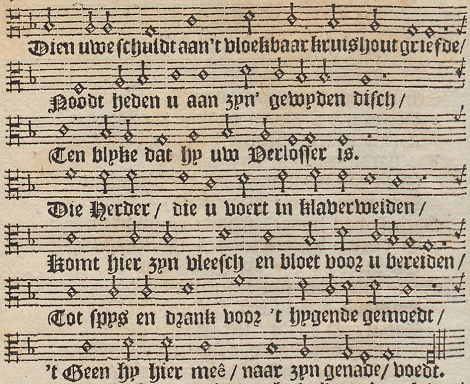 Dien uwe schuldt aan't vloekbaar kruishout griefde/
Noodt heden u aan zyn' gewyden disch/
Ten blyke dat hy uw Verlosser is.
Die Herder/ die u voert in klaverweiden/
Komt hier zyn vleesch en bloet voor u bereiden/
Tot spys en drank voor 't hygende gemoedt/
't Geen hy hier meê/ naar zyn genade/ voedt.